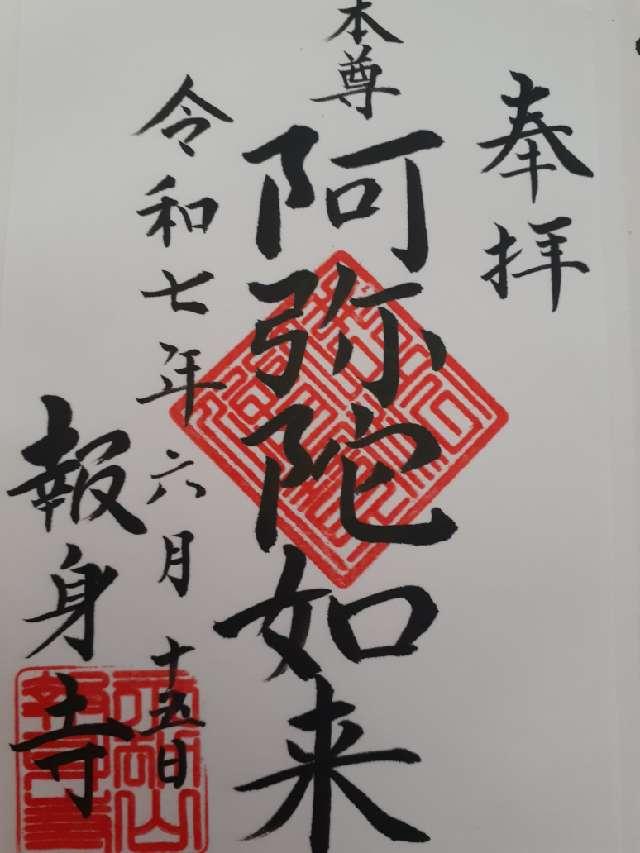 奉拝
本尊
阿弥陀如来
令和七年六月十五日
報身寺